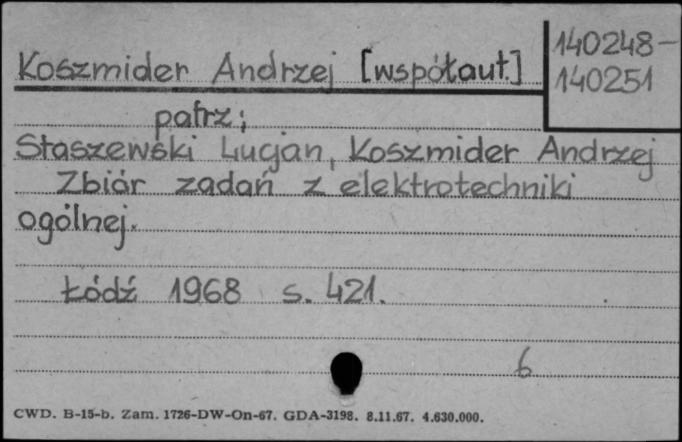 140248-
140251
Koszmider Andrzej [współaut.]
patrz;
Staszewski Lucjan, Koszmider Andrzej
Zbiór zadań z elektrotechniki
ogólnej.
Łódź 1968 s. 421.
6
CWD. B-15-b. Zam. 1726-DW-On-67. GDA-3198. 8.11.67. 4.630.000.